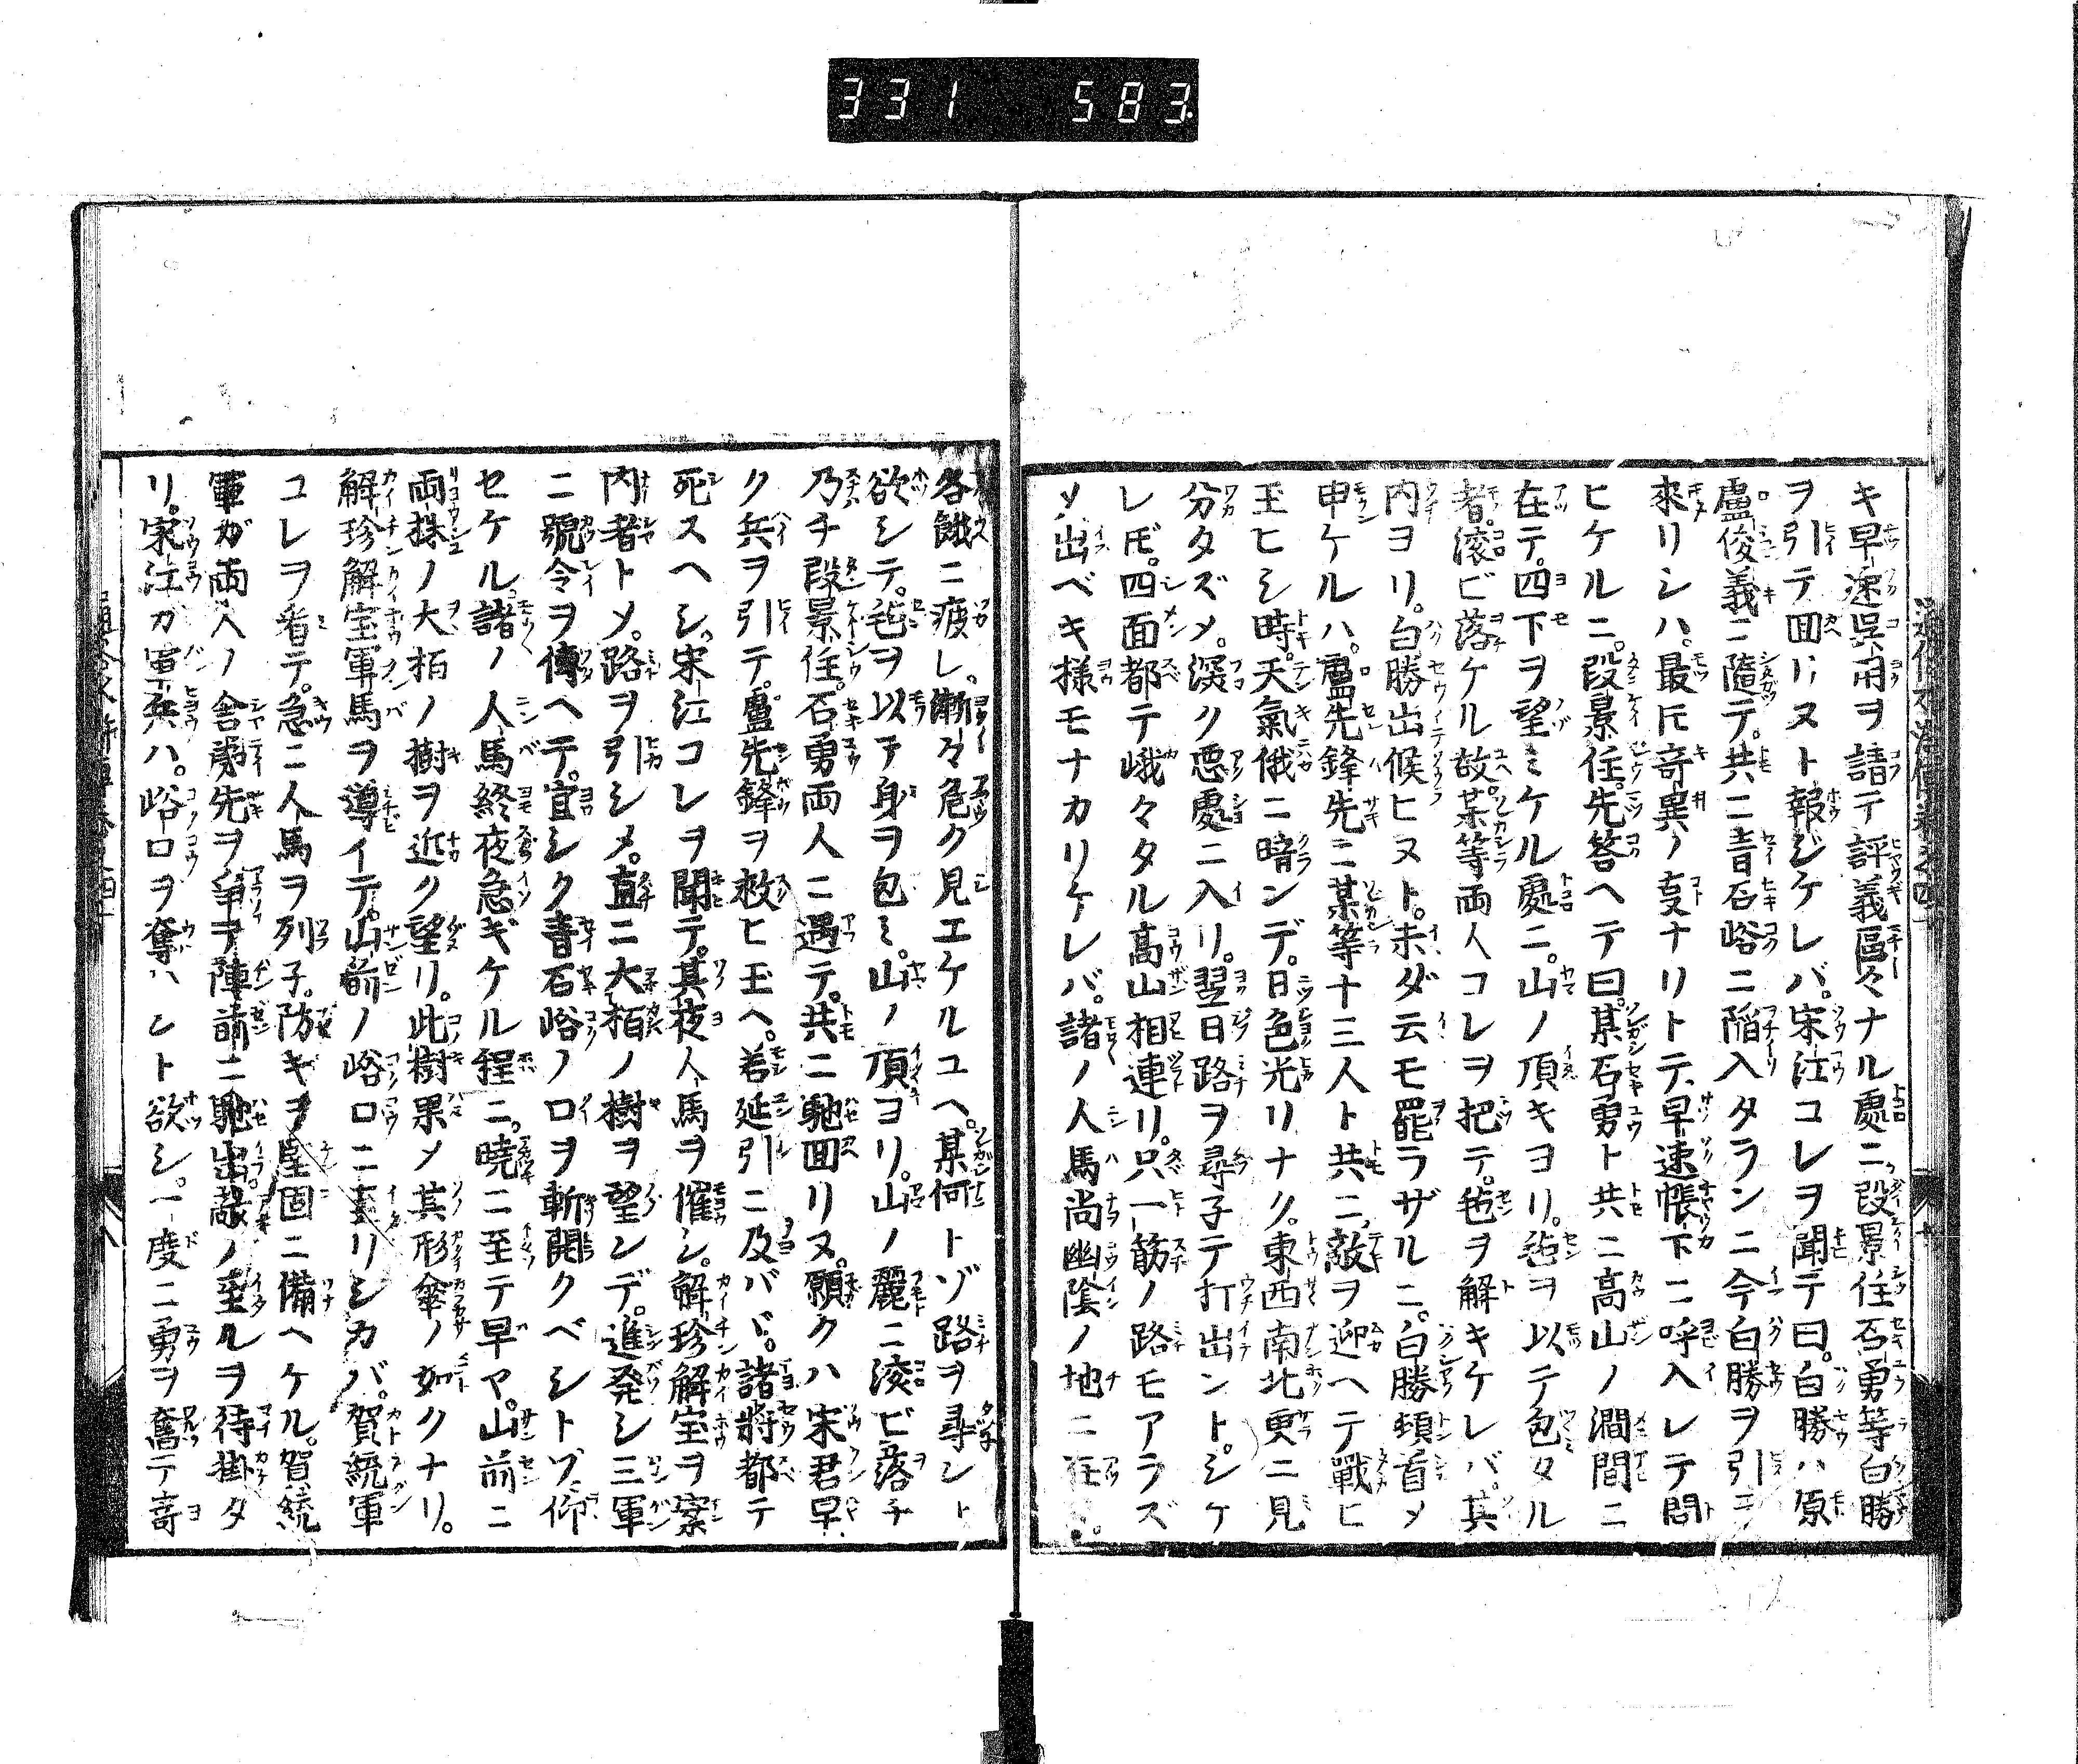 331 583
キ早速呉用ヲ請テ評義區々ナル處ニ段景住石勇等白勝
ヲ引テ回リヌト報ジケレバ。宋江コレヲ聞テ曰。白勝ハ原
盧俊義ニ隨テ。共ニ青石峪ニ陥入タランニ今白勝ヲ引テ
來リシハ。最𪜈奇異ノ㕝ナリトテ早速帳下ニ呼入レテ問
ヒケルニ。段景住先答ヘテ曰。某石勇ト共ニ高山ノ澗間ニ
在テ。四下ヲ望ミケル處ニ。山ノ頂キヨリ。毡ヲ以テ包タル
者。滚ビ落ケル故。某等両人コレヲ把テ。毡ヲ解キケレバ。其
内ヨリ。白勝出候ヒヌト。未ダ云モ罷ラザルニ。白勝頓首メ
申ケルハ。盧先鋒先ニ某等十三人ト共ニ敵ヲ迎ヘテ戰ヒ
玉ヒシ時。天氣俄ニ暗ンデ。日色光リナク。東西南北更ニ見
分タズメ。深ク悪處ニ入リ。翌日路ヲ尋子テ打出ントシケ
レ𪜈。四面都テ峨々タル高山相連リ。只一筋ノ路モアラズ
メ出ベキ様モナカリケレバ。諸ノ人馬尚幽陰ノ地ニ在
各餓ニ疲レ。漸々危ク見エケルユヘ。某何トゾ路ヲ尋ント
欲シテ。毡ヲ以テ身ヲ包ミ。山ノ頂ヨリ。山ノ麗ニ滚ビ落チ
乃チ段景住。石勇両人ニ遇テ。共ニ馳回リヌ。願クハ宋君早
ク兵ヲ引テ。盧先鋒ヲ救ヒ玉ヘ。若延引ニ及バヾ。諸將都テ
死スヘシ。宋江コレヲ聞テ。其夜人馬ヲ催シ。解珍解宝ヲ案
内者トメ。路ヲ引シメ。直ニ大栢ノ樹ヲ望ンデ。進発シ三軍
ニ號令ヲ傳ヘテ。宜シク青石峪ノ口ヲ斬開クベシトゾ仰
セケル。諸ノ人馬終夜急ギケル程ニ。暁ニ至テ早マ。山前ニ
両株ノ大栢ノ樹ヲ近ク望リ。此樹果メ其形傘ノ如クナリ。
解珍解宝軍馬ヲ導イテ。山前ノ峪口ニ至リシカバ。賀統軍
コレヲ看テ。急ニ人馬ヲ列子。防ギヲ堅固ニ備ヘケル。賀統
軍ガ両人ノ舎弟先ヲ爭テ陣前ニ馳出。敵ノ至ルヲ待掛タ
リ。宋江カ軍兵ハ。峪口ヲ奪ハント欲シ。一度ニ勇ヲ奮テ寄